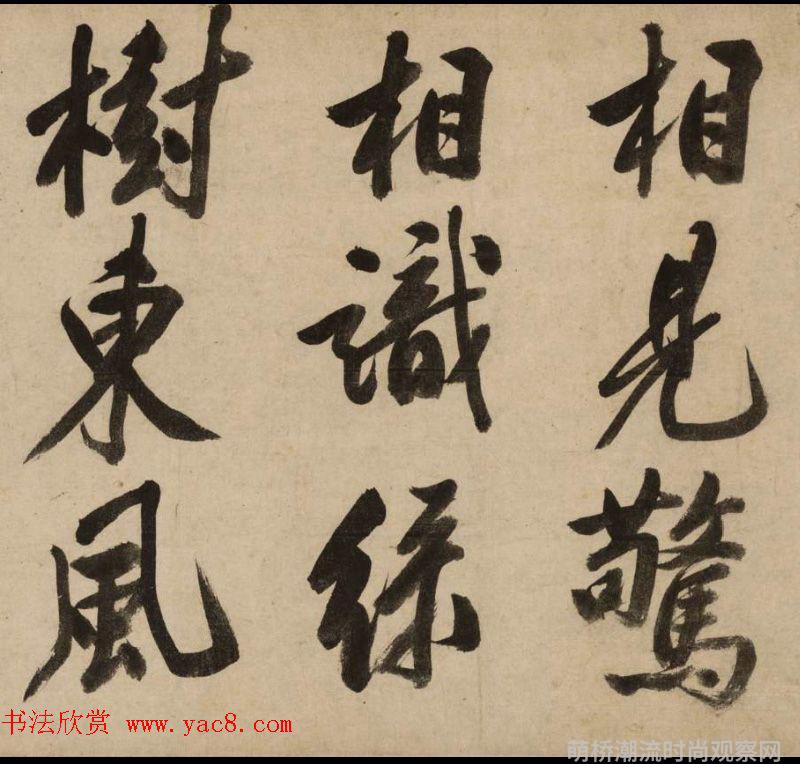 相見驚
相識綠
樹東風
书法欣赏 www.yac8.com
萌桥潮流时尚观察网